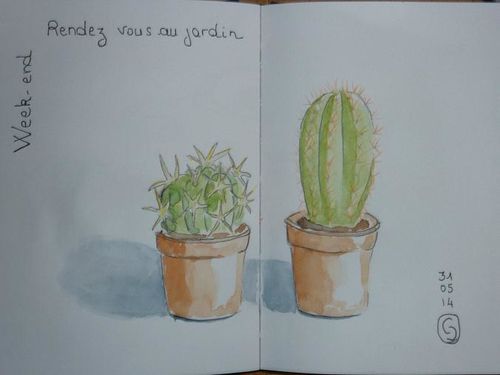 Rendez vous au jardin
Week-end
31
05
14